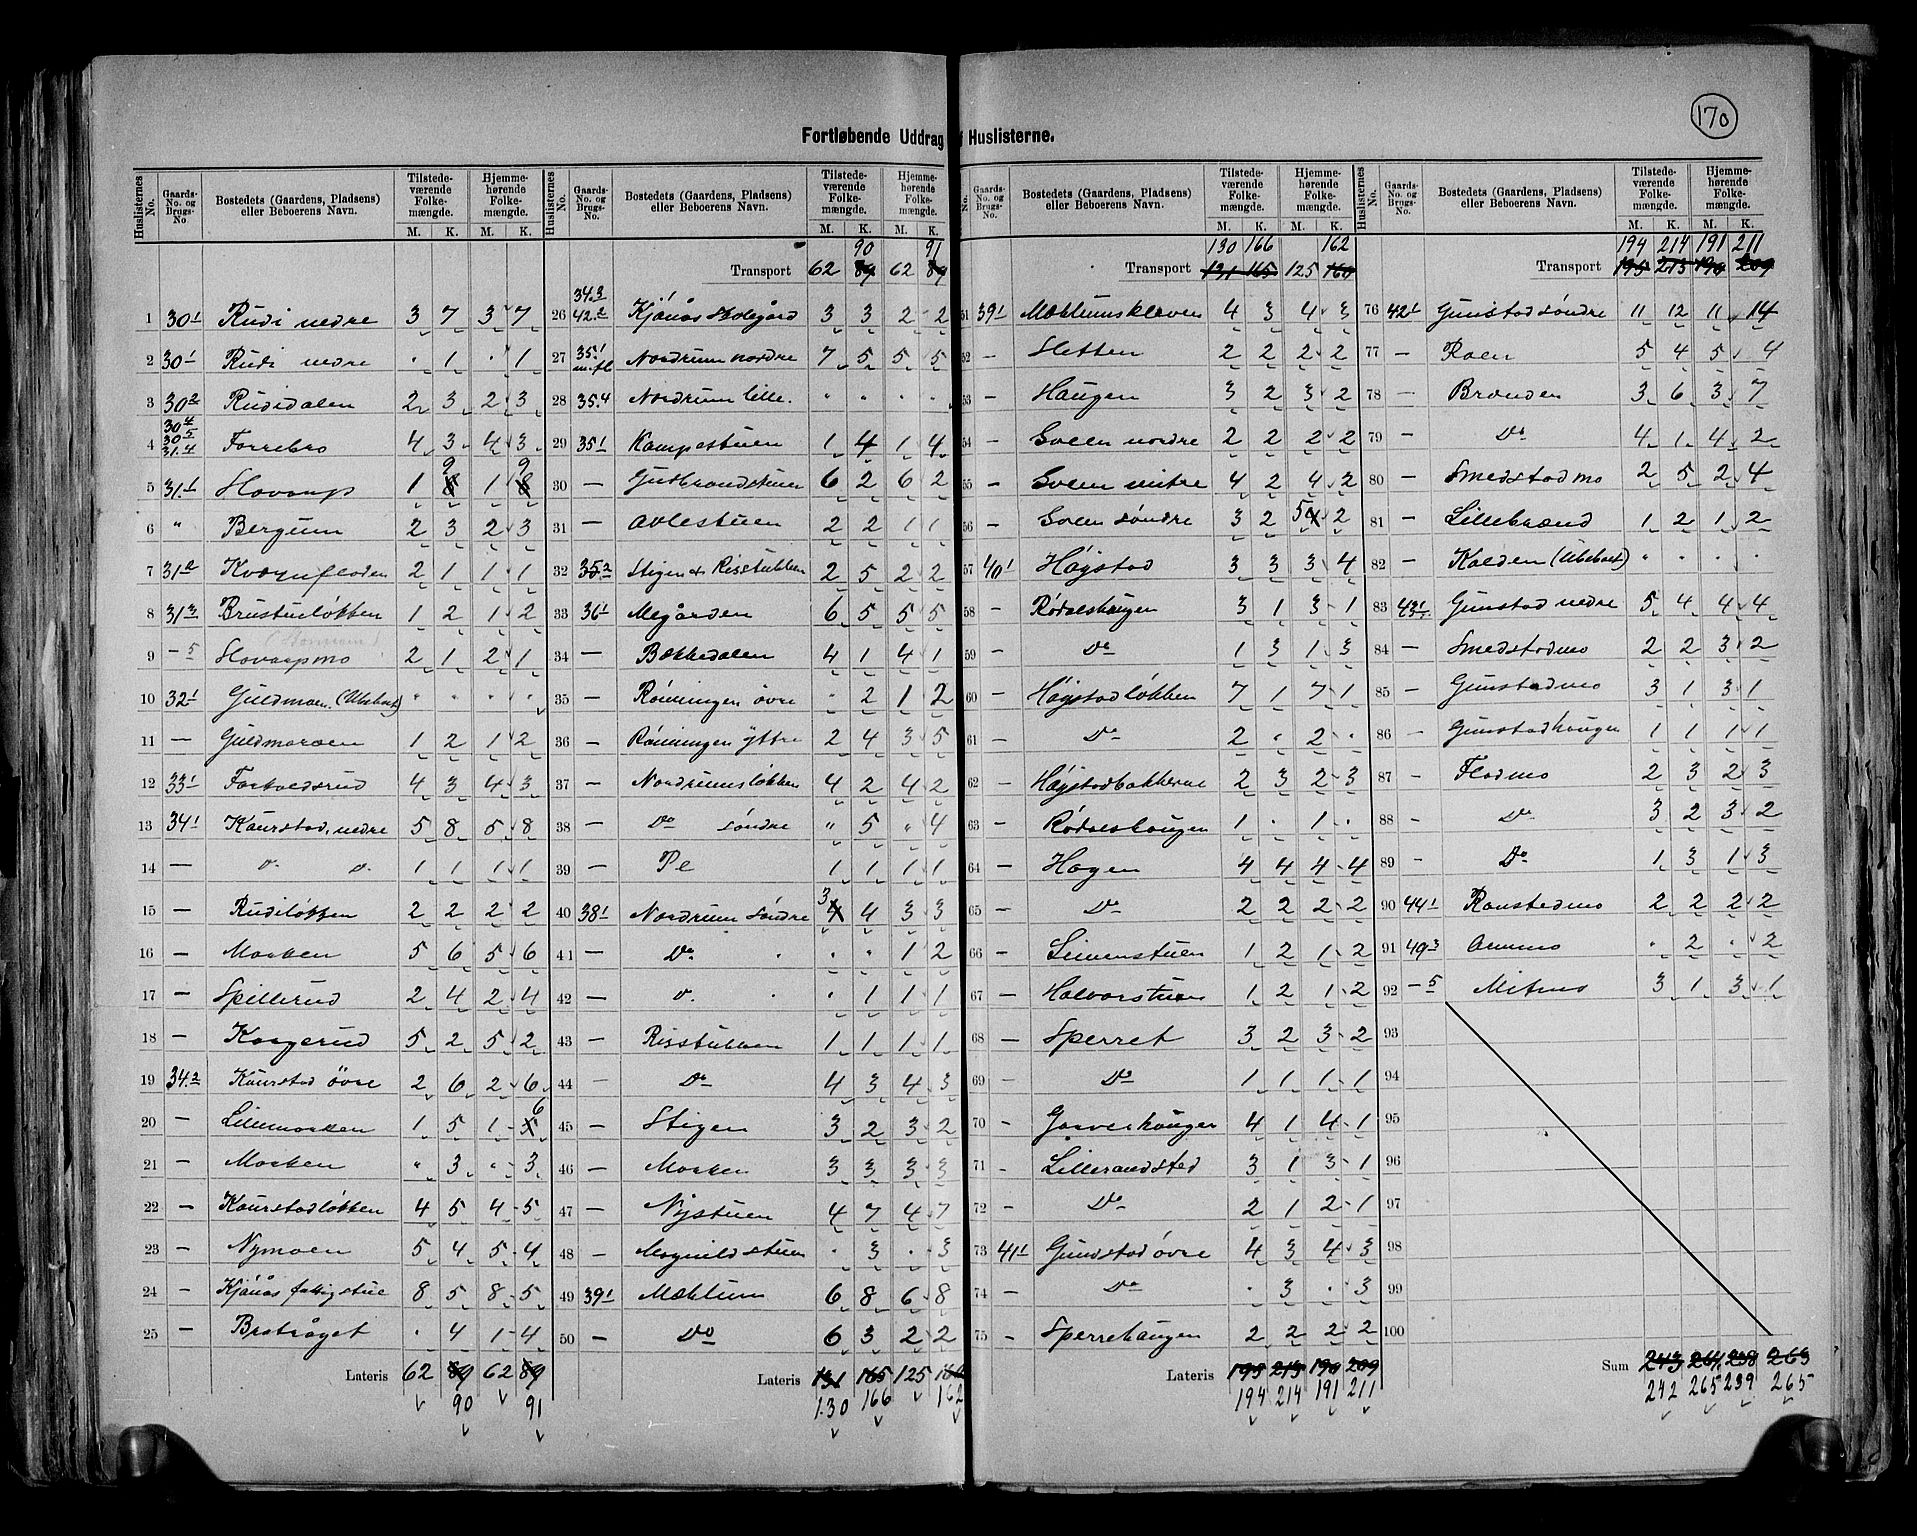 170
Fortløbende Uddrag f Huslisterne.
Huslisternes No. Gaards-No. og Brugs-No Bostedets (Gaardens, Pladsens) eller Beboerens Navn. Tilstedeværende Folkemængde. M. K. Hjemmehørende Folkemængde. M. K.
1 30.1 Rudi nedre 3 7 3 7
2 30.1 Rudi nedre . 1 . 1
3 30.2 Rudidalen 2 3 2 3
4 30.4 30.5 31.4 Forrebro 4 3 4 3
5 31.1 Hovarp 1 8 9 1 8 9
6 " Bergum 2 3 2 3
7 31.2 Kværnfloden 2 1 1 1
8 31.3 Brustuløkken 1 2 1 2
9 - 5 Hovarpmo 2 1 2 1
10 32.1 Guldmoen. (Ubeboet) " " " "
11 — Guldmoroen 1 2 1 2
12 33.1 Forkoldsrud 4 3 4 3
13 34.1 Kaurstad, nedre 5 8 5 8
14 — d. d. 1 1 1 1
15 — Rudiløkken 2 2 2 2
16 — Morken 5 6 5 6
17 — Spillerud 2 4 2 4
18 — Korgerud 5 2 5 2
19 34.2 Kaurstad övre 2 6 2 6
20 — Lillemorken 1 5 1 5 6
21 — Morken " 3 " 3
22 — Kaurstadløkken 4 5 4 5
23 — Nymoen 5 4 5 4
24 — Kjönås fattigstue 8 5 8 5
25 — Bratråget . 4 1 4
Lateris 62 89 62 89
90 91
Huslisternes No. Gaards-No. og Brugs-No. Bostedets (Gaardens, Pladsens) eller Beboerens Navn. Tilstedeværende Folkemængde. M. K. Hjemmehørende Folkemængde. M. K.
90 91
Transport 62 89 62 89
26 34.3 42.2 Kjönås Skolegård 3 3 2 2
27 35.1 m.fl Nordrum nordre 7 5 5 5
28 35.4 Nordrum lille. " . . .
29 35.1 Kampestuen 1 4 1 4
30 — Gudbrandstuen 6 2 6 2
31 — Avlestuen 2 2 1 1
32 35.2 Stigen & Risstubben 2 5 2 2
33 36.1 Megården 6 5 5 5
34 — Bækkedalen 4 1 4 1
35 — Rönningen övre . 2 1 2
36 — Rönningen yttre 2 4 3 5
37 — Nordrumsløkken 4 2 4 2
38 — Do søndre " 5 " 4
39 — Pe 1 1 1 1
40 38.1 Nordrum søndre 4 3 4 3 3
41 — Do . . 1 2
42 — d. . 1 1 1
43 — Risstubben 1 1 1 1
44 — Do 4 3 4 3
45 — Stigen 3 2 3 2
46 — Morken 3 3 3 3
47 — Nystuen 4 7 4 7
48 — Magnildstuen . 3 . 3
49 39.1 Mæhlum 6 8 6 8
50 — Do 6 3 2 2
Lateris 131 165 125 160
130 166 162
No. Gaards-No. og Brugs-No. Bostedets (Gaardens, Pladsens) eller Beboerens Navn. Tilstedeværende Folkemængde. M. K. Hjemmehørende Folkemængde. M. K.
130 166 162
Transport 131 165 125 160
51 39.1 Mæhlumskleven 4 3 4 3
52 — Sletten 2 2 2 2
53 — Haugen 3 2 3 2
54 — Soeen nordre 2 2 2 2
55 — Soeen mitre 4 2 4 2
56 — Soeen søndre 3 2 5 4 2
57 40.1 Høystad 3 3 3 4
58 — Rødoeshaugen 3 1 3 1
59 — Do 1 3 1 3
60 — Høystadløkken 7 1 7 1
61 — Do 2 . 2 .
62 — Høystadbakkerne 2 3 2 3
63 — Rødoeshaugen 1 . 1 .
64 — Hagen 4 4 4 4
65 — Do 2 2 2 2
66 — Simenstuen 1 2 1 2
67 — Halvorstuen 1 2 1 2
68 — Sperret 3 2 3 2
69 — Do 1 1 1 1
70 — Garverhaugen 4 1 4 1
71 — Lillerandsted 3 1 3 1
72 — Do 2 1 2 1
73 41.1 Gundstad övre 4 3 4 3
74 — Do . 3 . 3
75 — Sperrehaugen 2 2 2 2
Lateris 195 213 190 209
194 214 191 211
Huslisternes No. Gaards-No. og Brugs-No. Bostedets (Gaardens, Pladsens) eller Beboerens Navn. Tilstedeværende Folkemængde. M. K. Hjemmehørende Folkemængde. M. K.
194 214 191 211
Transport 195 213 190 209
76 42.1 Gunstad søndre 11 12 11 14
77 — Roen 5 4 5 4
78 — Brænden 3 6 3 7
79 — Do 4 1 4 2
80 — Smedstadmo 2 5 2 4
81 — Lillebrænd 1 2 1 2
82 — Kalden (Ubeboet) " . . .
83 43.1 Gunstad nedre 5 4 4 4
84 — Smedstadmo 2 2 3 2
85 — Gunstadmo 3 1 3 1
86 — Gunstadhaugen 1 1 1 1
87 — Flodmo 2 3 2 3
88 — Do 3 2 3 2
89 — Do 1 3 1 3
90 44.1 Ranstedmo 2 2 2 2
91 49.3 Ommo . 2 . 2
92 - 5 Mitmo 3 1 3 1
93
94
95
96
97
98
99
100
Sum 243 264 238 263
242 265 239 265